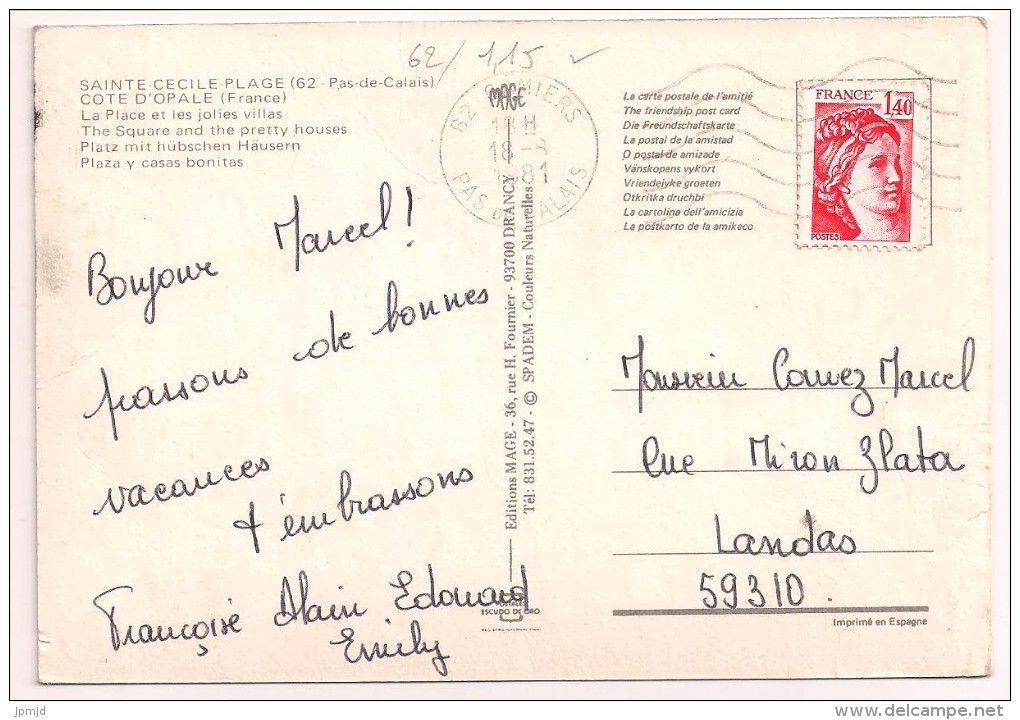 62/ 1,15
SAINTE-CECILE-PLAGE (62 - Pas-de-Calais)
COTE D'OPALE (France)
La Place et les jolies villas
The Square and the pretty houses
Platz mit hübschen Häusern
Plaza y casas bonitas
Bonjour Marcel!
passons de bonnes
vacances
t'embrassons
Françoise Alain Edouard
Emily
MAGE
18 H
18 - 8
81
PAS DE CALAIS
Editions MAGE - 36, rue H. Fournier - 93700 DRANCY
Tél: 831.52.47 - © SPADEM - Couleurs Naturelles
POSTALES
ESCUDO DE ORO
La carte postale de l'amitié
The friendship post card
Die Freundschaftskarte
La postal de la amistad
O postal de amizade
Vänskopens vykort
Vriendelyke groeten
Otkritka druchbi
La cartolina dell'amicizia
La postkarto de la amikeco
FRANCE
1,40
POSTES
Monsieur Marcel
rue Miron Zlata
Landas
59310.
Imprimé en Espagne
jpmjd
www.delcampe.net